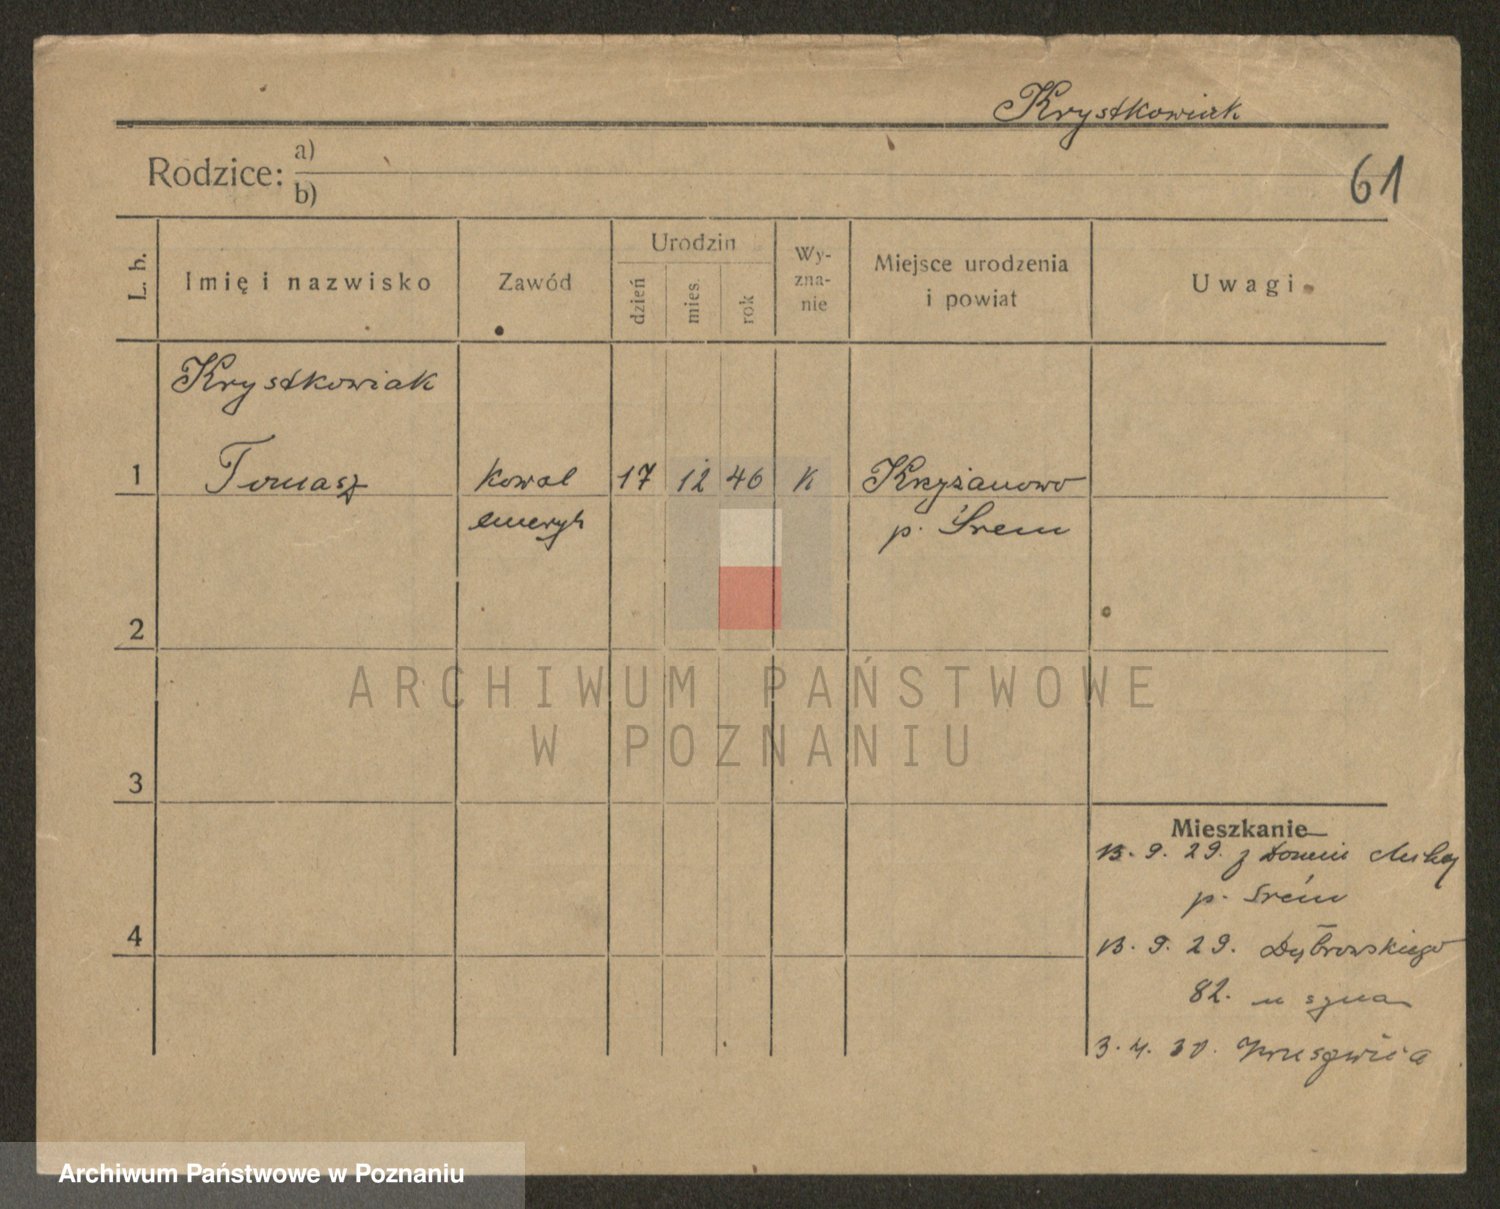 Krystkowiak
Rodzice: a)
b)
61
L. b.
Imię i nazwisko
Zawód
Urodzin
dzień
mies.
rok
Wy-
zna-
nie
Miejsce urodzenia
i powiat
Uwagi
Krystkowiak
1 Tomasz kowal 17 12 46 K Krzyżanowo
emeryt p. Śrem
2
ARCHIWUM PAŃSTWOWE
W POZNANIU
3
Mieszkanie
13. 9. 29. z
p. Śrem
4
13. 9. 29. Dąbrowskiego
82. u syna
3. 4. 30. Kruszwica
Archiwum Państwowe w Poznaniu